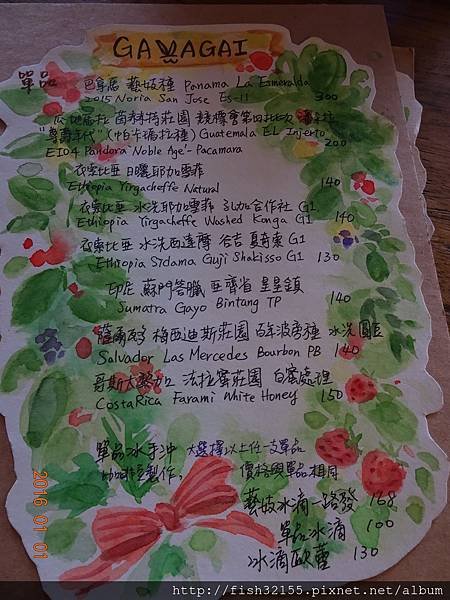 GAVAGAI
單品 巴拿馬 藝妓種 Panama La Esmeralda
2015 Noria San Jose Es-11 300
瓜地馬拉 茵赫特莊園 競標會第四批次 潘朵拉
"尊爵年代"(帕卡瑪拉種) Guatemala EL Injerto
E104 Pandora 'Noble Age' - Pacamara 200
衣索比亞 日曬耶加雪菲
Ethiopia Yirgacheffe Natural 140
衣索比亞 水洗耶加雪菲 孔加合作社 G1
Ethiopia Yirgacheffe Washed Konga G1 140
衣索比亞 水洗西達摩 谷吉 夏奇索 G1
Ethiopia Sidama Guji Shakisso G1 130
印尼 蘇門答臘 亞齊省 星星鎮
Sumatra Gayo Bintang TP 140
薩爾瓦多 梅西迪斯莊園 百年波旁種 水洗圓豆
Salvador Las Mercedes Bourbon PB 140
哥斯大黎加 法拉蜜莊園 白蜜處理
Costa Rica Farami White Honey 150
單品冰手沖 選擇以上任一支單品
咖啡豆製作, 價格與單品相同
藝妓冰滴一路發 168
單品冰滴 100
冰滴歐蕾 130
2016 01 01
http://fish32155.pixnet.net/album